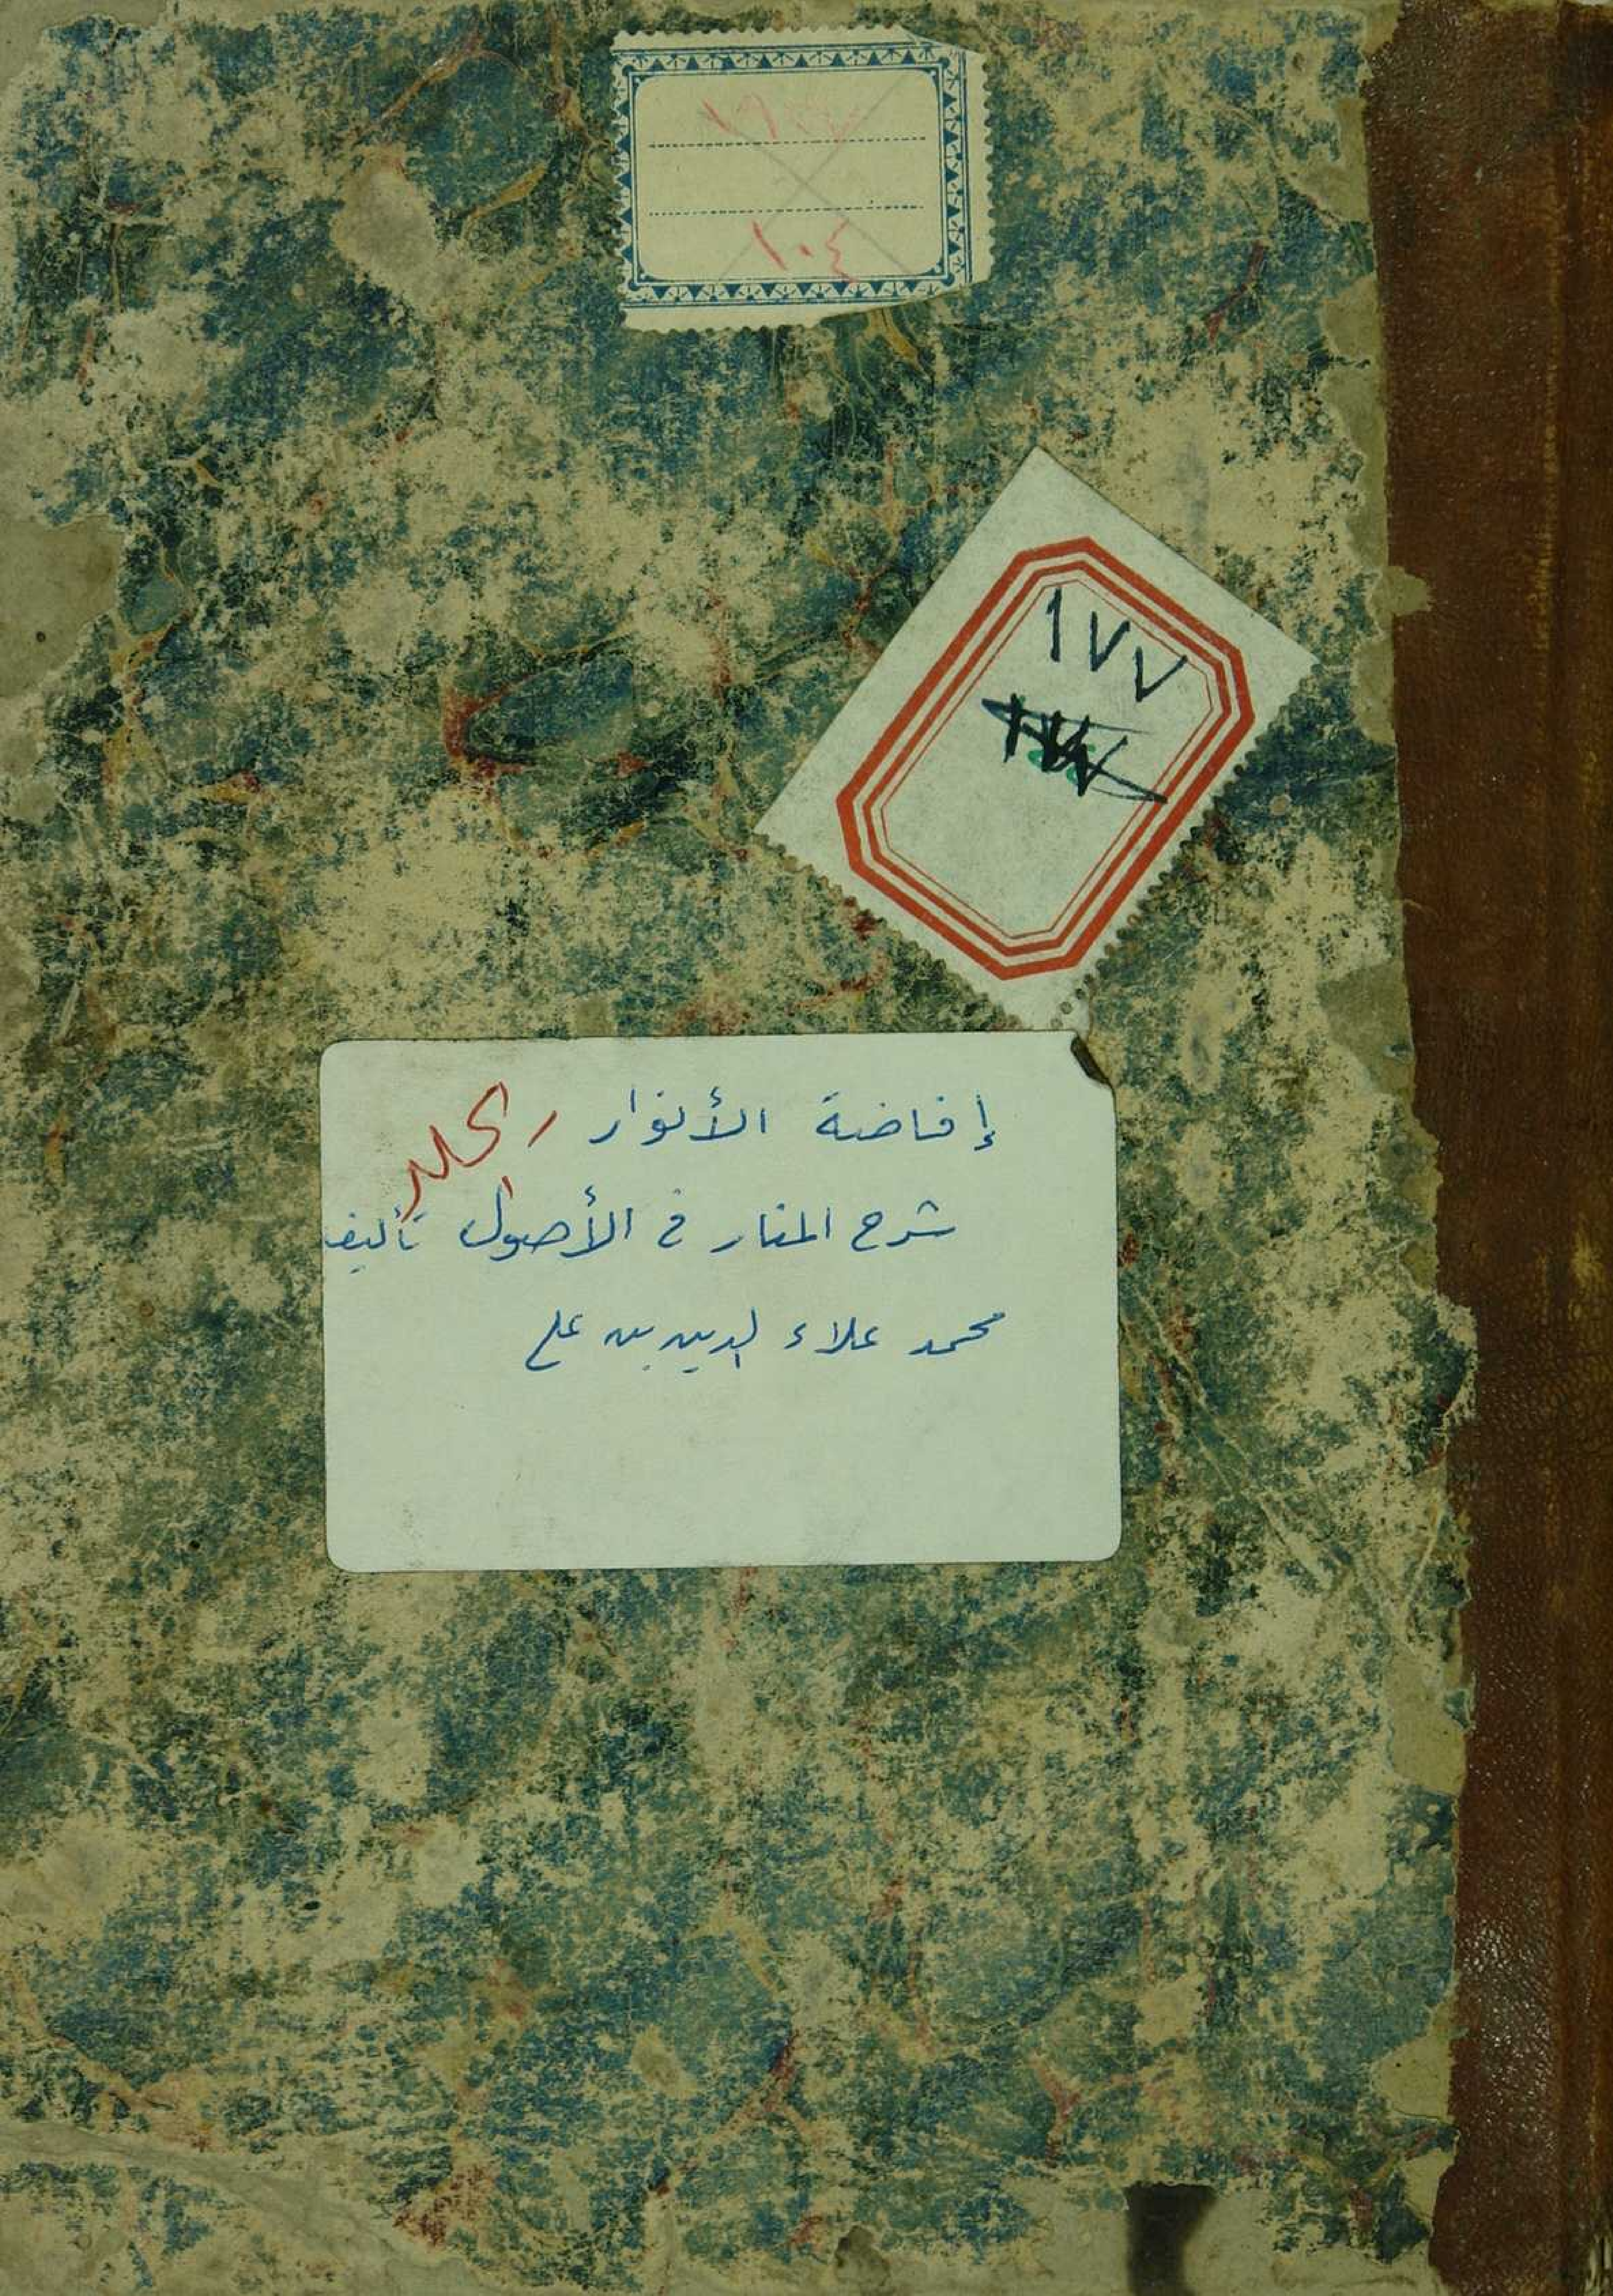 ١٠٤
١٧٧
إفاضة الأنوار
شرح المنار في الأصول تأليف
محمد علاء الدين بن علي